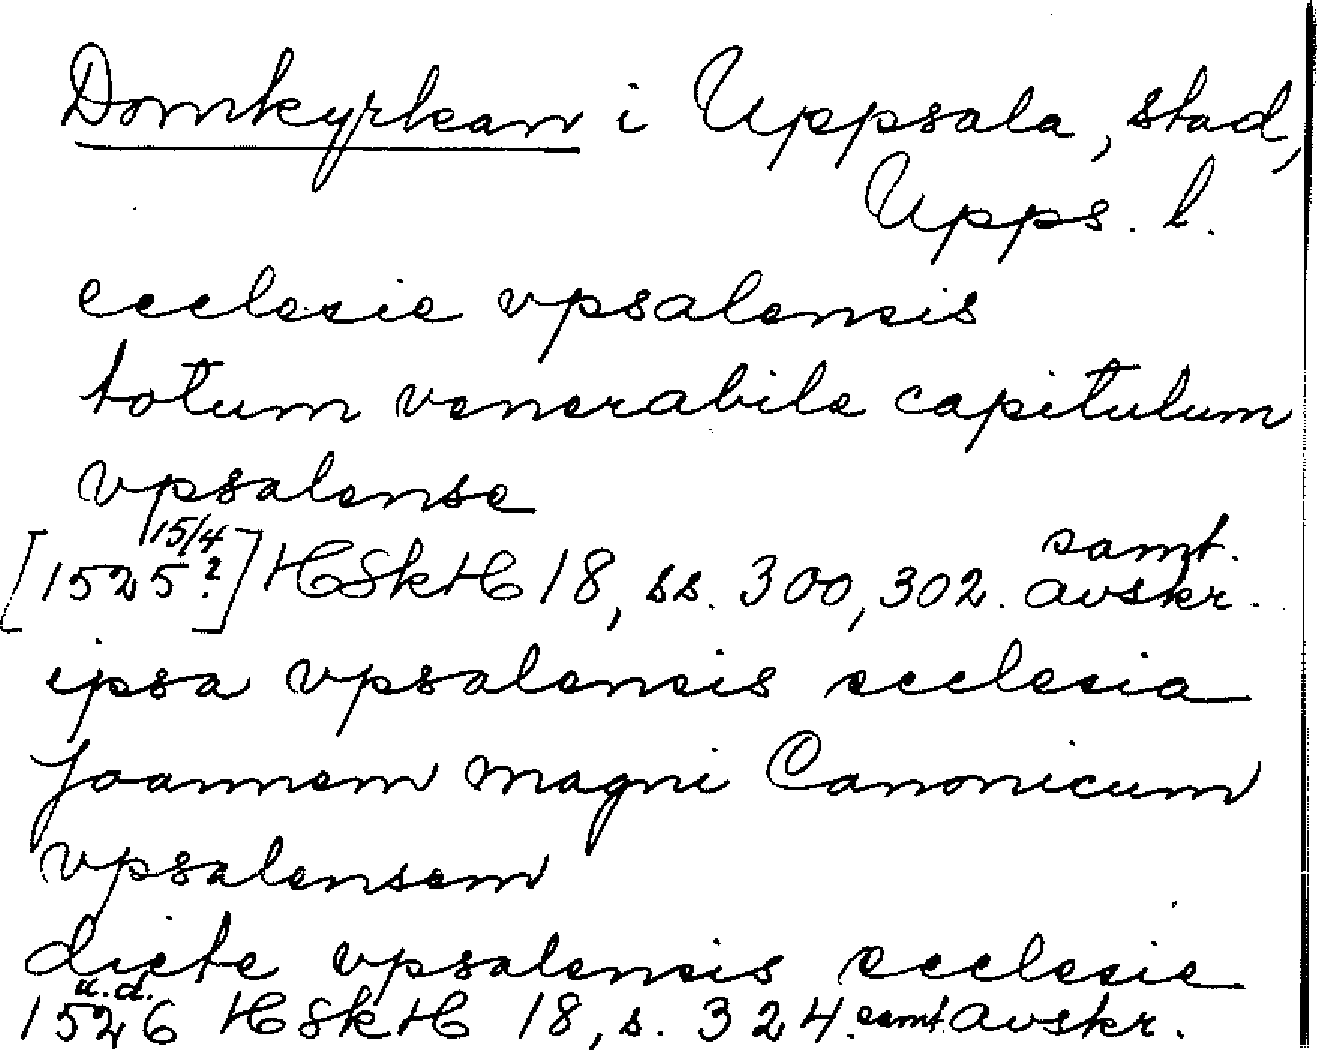 Domkyrkan i Uppsala, stad,
Upps. l.
ecclesie vpsalensis
totum venerabile capitulum
vpsalense
[1525 15/4 ?] HSkH 18, ss. 300, 302. samt. avskr.
ipsa vpsalensis ecclesia
Joannem magni Canonicum
vpsalensem
dicte vpsalensis ecclesie
1526 u.d. HSkH 18, s. 324. samt. avskr.